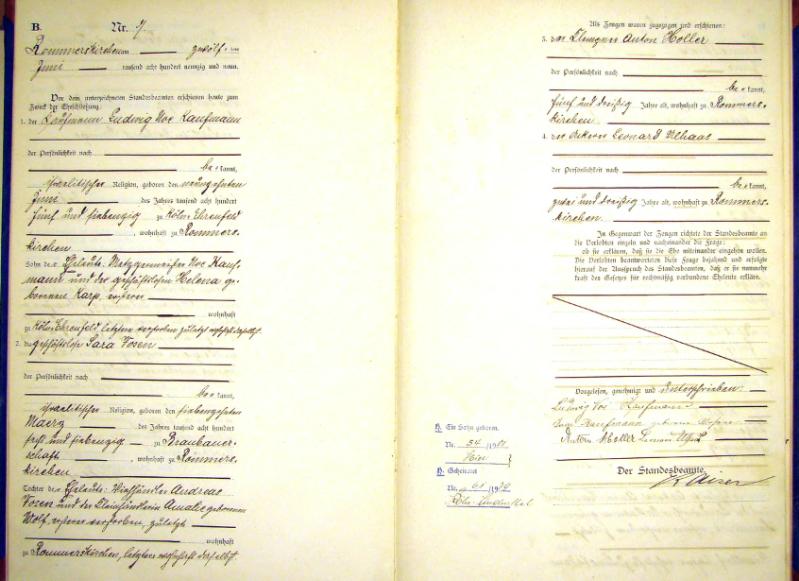 B.
Nr. 7
Rommerskirchen am zwölf ten
Juni tausend acht hundert neunzig und neun.
Vor dem unterzeichneten Standesbeamten erschienen heute zum
Zweck der Eheschließung:
1. der Kaufmann Ludwig Noe Kaufmann
der Persönlichkeit nach
be kannt,
israelitischer Religion, geboren den neunzehnten
Juni des Jahres tausend acht hundert
fünf und siebenzig zu Köln-Ehrenfeld
, wohnhaft zu Rommers-
kirchen
Sohn der Eheleute: Metzgermeister Noe Kauf-
mann und der geschäftslosen Helena ge-
borenen Karp, ersterer
wohnhaft
zu Köln-Ehrenfeld letztere verstorben zuletzt wohnhaft daselbst.
2. die geschäftslose Sara Vosen
der Persönlichkeit nach
be kannt,
israelitischer Religion, geboren den siebenzehnten
Maerz des Jahres tausend acht hundert
sechs und siebenzig zu Braubauer-
schaft , wohnhaft zu Rommers-
kirchen
Tochter der Eheleute: Viehhändler Andreas
Vosen und der Kleinhändlerin Amalie geborenen
Wolf, ersterer verstorben, zuletzt
wohnhaft
zu Rommerskirchen, letztere wohnhaft daselbst.
Als Zeugen waren zugezogen und erschienen:
3. der Anton Holler
der Persönlichkeit nach
be kannt,
fünf und dreißig Jahre alt, wohnhaft zu Rommers-
kirchen
4. der Ackerer Leonard Ulhaas
der Persönlichkeit nach
be kannt,
zwei und dreißig Jahre alt, wohnhaft zu Rommers-
kirchen.
In Gegenwart der Zeugen richtete der Standesbeamte an
die Verlobten einzeln und nacheinander die Frage:
ob sie erklären, daß sie die Ehe miteinander eingehen wollen.
Die Verlobten beantworteten diese Frage bejahend und erfolgte
hierauf der Ausspruch des Standesbeamten, daß er sie nunmehr
kraft des Gesetzes für rechtmäßig verbundene Eheleute erkläre.
Vorgelesen, genehmigt und unterschrieben:
Ludwig Noe Kaufmann
Sara Kaufmann geborene Vosen
Anton Holler
Der Standesbeamte.
Ein Sohn geboren.
Nr. 54
Geheiratet
Nr.
Köln-Lindenthal